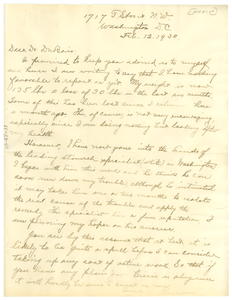 1717 T Street N.W.
Washington D.C.
Dec. 12, 1930
Dear Dr. DuBois
I promised to keep you advised as to myself
and hence I am writing to say that I am making
favorable to report on. My weight is now
135 lbs a loss of 30 lbs in the last six months
Some of this has been lost since I returned here
a month ago. This of course is not very
especially since I am losing nothing and looking after
health
However, I have now gone into the hands of
the leading stomach specialist in Washington.
I began with him this week and he thinks he can
soon run down my trouble; although he intimated
it may take him two or three months to isolate
the real cause of the trouble and apply the
remedy. The specialist has a fine reputation. I
am pinning my hopes on his success.
You see by this reasons that at best it is
likely to be quite a spell before I can consider
taking up any sort of active work. So that if
you have any plans for
it will hardly be